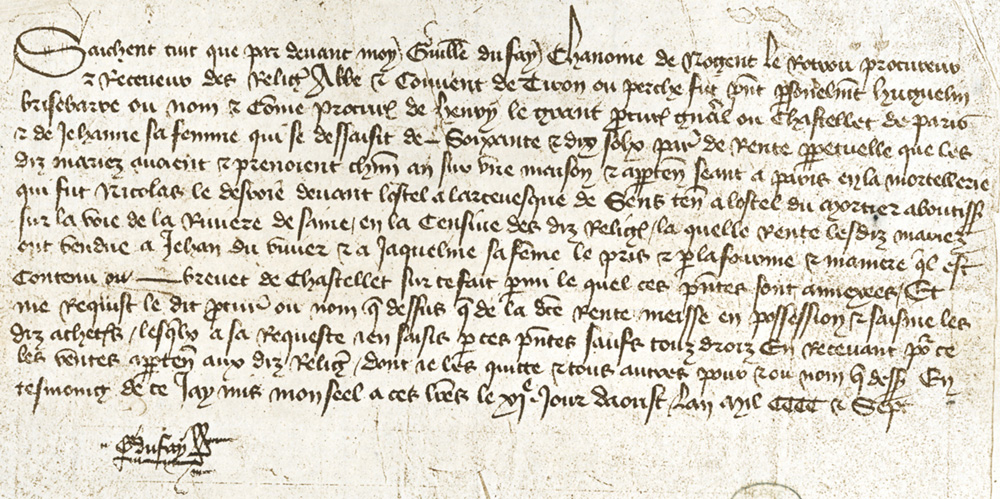 Saichent tuit que par devant moy Guille du fay Chanoine de Nogent le Rotrou procureur
& Receveur des Relig Abbe & Convent de Tiron ou perche fut pnt psonelmt huguelin
brisebarre ou nom & Come procur de henry le grant pcur gnal ou Chastellet de paris
& de Jehanne sa femme qui se dessaisit de Soixante & dix solx par de Rente ppetuelle que les
diz mariez avoient & prenoient chun an sur une maison & apparten seant a paris en la mortellerie
qui fut Nicolas le despoire devant lostel a larcevesque de Sens ten a lostel du mortier aboutiss
sur la voie de la Riviere de saine, en la Censive des diz Relig, la quelle Rente lesdiz mariez
ont vendue a Jehan du vivier & a Jaqueline sa feme le pris & p la fourme & maniere ql est
Contenu ou brevet de Chastellet sur ce fait pmi le quel ces pntes sont annexees, Et
me Requist le dit pcur ou nom q dessus q de la dte Rente meisse en possession & saisine les
diz achetrs, lesqlx a sa Requeste jen saisis p ces pntes saufs touz droiz En Recevant por ce
les ventes apparten aux diz Relig, dont je les quitte & tous autres pour & ou nom q dess En
tesmoing de ce Jay mis mon seel a ces lres le xje Jour daoust, Lan mil CCCC & Sept
G dufay